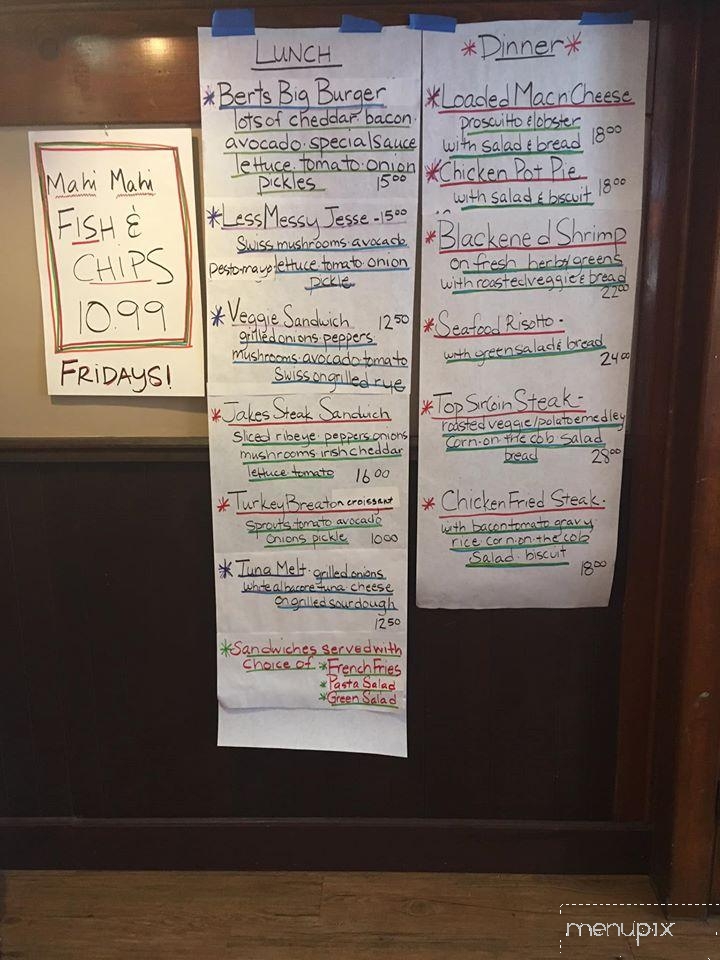 Mahi Mahi
FISH &
CHIPS
10.99
FRIDAYS!
LUNCH
*Berts Big Burger
lots of cheddar bacon.
avocado. special sauce
lettuce. tomato. onion
pickles 15⁰⁰
*Less Messy Jesse -15⁰⁰
Swiss mushrooms. avocado
pesto-mayo lettuce tomato onion
pickle
*Veggie Sandwich 12⁵⁰
grilled onions. peppers
mushrooms. avocado tomato
Swiss on grilled rye
*Jakes Steak Sandwich
sliced ribeye. peppers. onions
mushrooms. irish cheddar
lettuce tomato 16⁰⁰
*Turkey Breaton croissant
sprouts. tomato avocado
onions pickle 10⁰⁰
*Tuna Melt. grilled onions
white albacore tuna. cheese
on grilled sourdough
12⁵⁰
*Sandwiches served with
Choice of *French Fries
*Pasta Salad
*Green Salad
*Dinner*
*Loaded Mac n Cheese
proscuitto & lobster
with salad & bread 18⁰⁰
*Chicken Pot Pie
with salad & biscuit 18⁰⁰
*Blackened Shrimp
on fresh herbs/greens
with roasted veggie & bread
22⁰⁰
*Seafood Risotto -
with green salad & bread
24⁰⁰
*Top Sirloin Steak -
roasted veggie/potatoe medley
corn-on-the cob salad
bread 28⁰⁰
*Chicken Fried Steak.
with bacon tomato gravy
rice. corn-on-the cob
Salad. biscuit
18⁰⁰
menupix